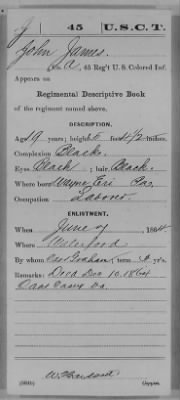 J 45 U.S.C.T.
John James
Co. A, 45 Reg't U. S. Colored Inf.
Appears on
Regimental Descriptive Book
of the regiment named above.
DESCRIPTION.
Age 19 years; height 5 feet 4 1/2 inches.
Complexion Black
Eyes Black; hair Black
Where born Wayne, Eri Pa.
Occupation Laborer
ENLISTMENT.
When June 7, 1864
Where Waterford
By whom Graham; term 3 y'rs
Remarks: Died Dec 10. 1864
Camp Va.
Copyist.